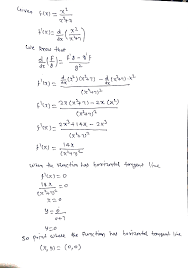 Given f(x) = x²/(x²+7)
f'(x) = d/dx (x²/(x²+7))
We know that
d/dx (f/g) = (f'g - g'f)/g²
f'(x) = (d/dx(x²)(x²+7) - d/dx(x²+7)·x²)/(x²+7)²
f'(x) = (2x(x²+7) - 2x(x²))/(x²+7)²
f'(x) = (2x³+14x-2x³)/(x²+7)²
f'(x) = 14x/(x²+7)²
when the function has horizontal tangent line
f'(x) = 0
14x/(x²+7)² = 0
x = 0
y = 0/(0+7)
y = 0
So point where the function has horizontal tangent line
(x, y) = (0,0)